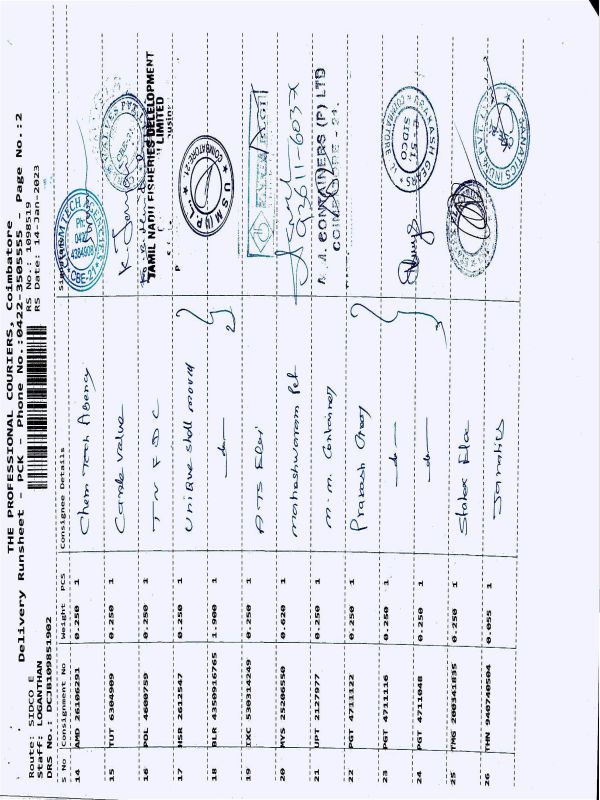 THE PROFESSIONAL COURIERS, Coimbatore
Delivery Runsheet - PCK - Phone No.:0422-3505555 - Page No.:2
Route: SIDCO E
RS No.: 10985119
Staff: LOGANTHAN
RS Date: 14-Jan-2023
DRS No.: DCJB109851902
S No Consignment No Weight PCS Consignee Details
14 AMD 26106291 0.250 1 Chem Tech Agency
15 TUT 6304909 0.250 1 Castle Value
16 POL 4600759 0.250 1 TN F D C
17 HSR 2612547 0.250 1 Unique Shell mould
18 BLR 4350916765 1.900 1 —do—
19 IXC 530314249 0.250 1
20 MYS 25206550 0.620 1 mahashwaram Pet
21 UPT 2127977 0.250 1 m.m. Container
22 PGT 4711122 0.250 1 Prakash
23 PGT 4711116 0.250 1 —do—
24 PGT 4711048 0.250 1 —do—
25 TMG 200341835 0.250 1
26 THN 940740504 0.055 1
Ph:
0422
CBE-21
TAMIL NADU FISHERIES DEVELOPMENT
LIMITED
COIMBATORE-21.
U S M (I) P. L.,
CONTAINERS (P) LTD
SIDCO
COIMBATORE